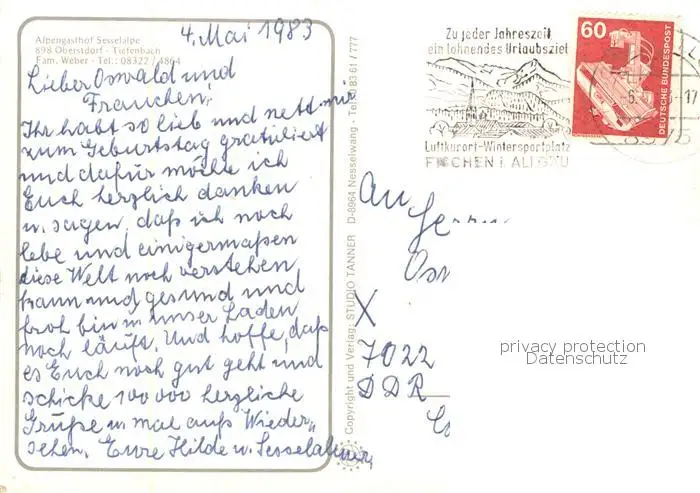 Alpengasthof Sesselalpe
898 Oberstdorf - Tiefenbach
Fam. Weber - Tel.: 08322 / 4864
4. Mai 1983
Lieber Oswald und
Frauchen,
Ihr habt so lieb und nett mir
zum Geburtstag gratuliert
und dafür möchte ich
Euch herzlich danken
u. sagen, daß ich noch
lebe und einigermaßen
diese Welt noch verstehen
kann und gesund und
froh bin u. unser Laden
noch läuft. Und hoffe, daß
es Euch noch gut geht und
schicke 100 000 herzliche
Grüße u. mal aufs Wieder„
sehen. Eure Hilde u. Sesselalmer
Copyright und Verlag: STUDIO TANNER D-8964 Nesselwang - Tel. 0 83 61 / 777
Zu jeder Jahreszeit
ein lohnendes Urlaubsziel
Luftkurort-Wintersportplatz
FISCHEN i. ALLGÄU
60
DEUTSCHE BUNDESPOST
-17
8975
An
Os
X
7022
DDR
privacy protection
Datenschutz